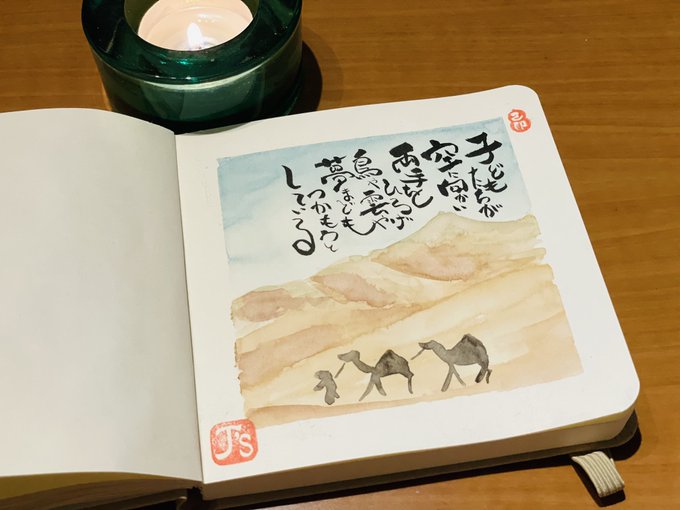 子ども
たちが
空に向かい
両手を
ひろげ
鳥や雲や
夢までも
つかもうと
している
J's